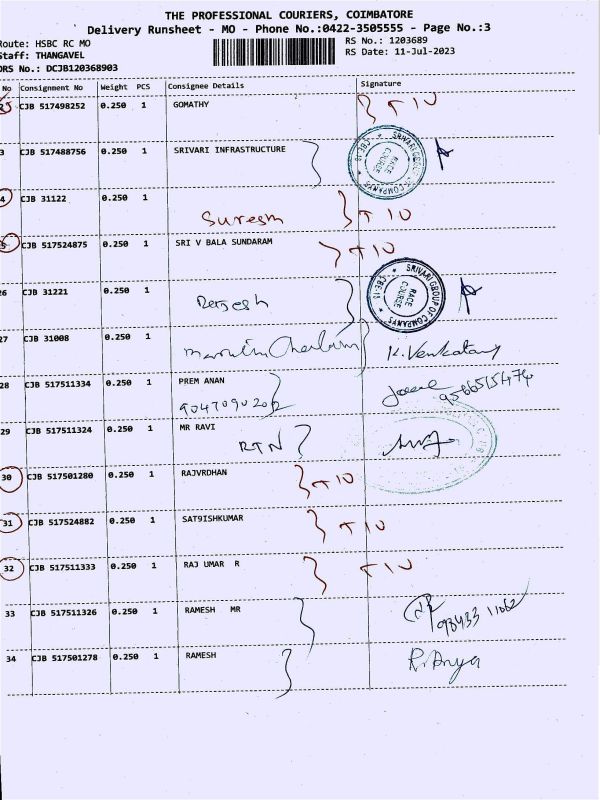 THE PROFESSIONAL COURIERS, COIMBATORE
Delivery Runsheet - MO - Phone No.:0422-3505555 - Page No.:3
Route: HSBC RC MO
RS No.: 1203689
Staff: THANGAVEL
RS Date: 11-Jul-2023
DRS No.: DCJB120368903
No Consignment No Weight PCS Consignee Details Signature
CJB 517498252 0.250 1 GOMATHY
3 CJB 517488756 0.250 1 SRIVARI INFRASTRUCTURE
SRIVARI GROUP OF COMPANYS * CBE-18 *
RACE COURSE
4 CJB 31122 0.250 1
Suresh
5 CJB 517524875 0.250 1 SRI V BALA SUNDARAM
26 CJB 31221 0.250 1
SRIVARI GROUP OF COMPANYS * CBE-18 *
RACE COURSE
27 CJB 31008 0.250 1
K. Venkatany
28 CJB 517511334 0.250 1 PREM ANAN
29 CJB 517511324 0.250 1 MR RAVI
RTN
30 CJB 517501280 0.250 1 RAJVRDHAN
31 CJB 517524882 0.250 1 SAT9ISHKUMAR
32 CJB 517511333 0.250 1 RAJ UMAR R
33 CJB 517511326 0.250 1 RAMESH MR
34 CJB 517501278 0.250 1 RAMESH
R. Anya